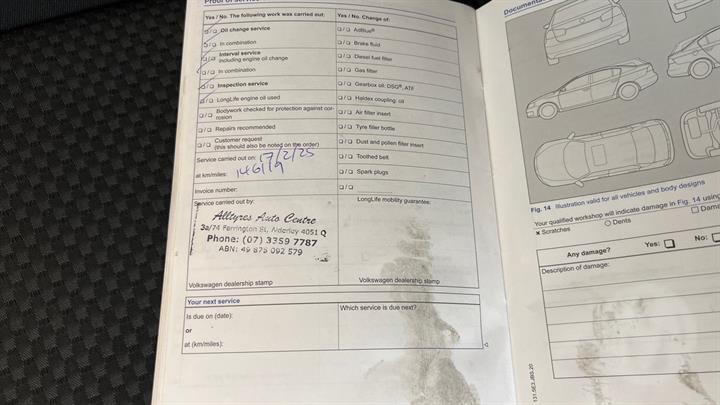 Proof of service
Yes / No. The following work was carried out:
Oil change service
In combination
Interval service
including engine oil change
In combination
Inspection service
LongLife engine oil used
Bodywork checked for protection against cor-
rosion
Repairs recommended
Customer request
(this should also be noted on the order)
Service carried out on: 17/2/25
at km/miles:
Invoice number:
Service carried out by:
Alltyres Auto Centre
3a/74 Ferrington St, Alderley 4051 Q
Phone: (07) 3359 7787
ABN: 49 875 092 579
Volkswagen dealership stamp
Yes / No. Change of:
AdBlue®
Brake fluid
Diesel fuel filter
Gas filter
Gearbox oil: DSG®, ATF
Haldex coupling: oil
Air filter insert
Tyre filler bottle
Dust and pollen filter insert
Toothed belt
Spark plugs
LongLife mobility guarantee:
Volkswagen dealership stamp
Your next service
Is due on (date):
or
at (km/miles):
Which service is due next?
Fig. 14 Illustration valid for all vehicles and body designs
Your qualified workshop will indicate damage in Fig. 14 using
Scratches
Dents
Any damage?
Yes:
No:
Description of damage:
131.5E2.JBS.20